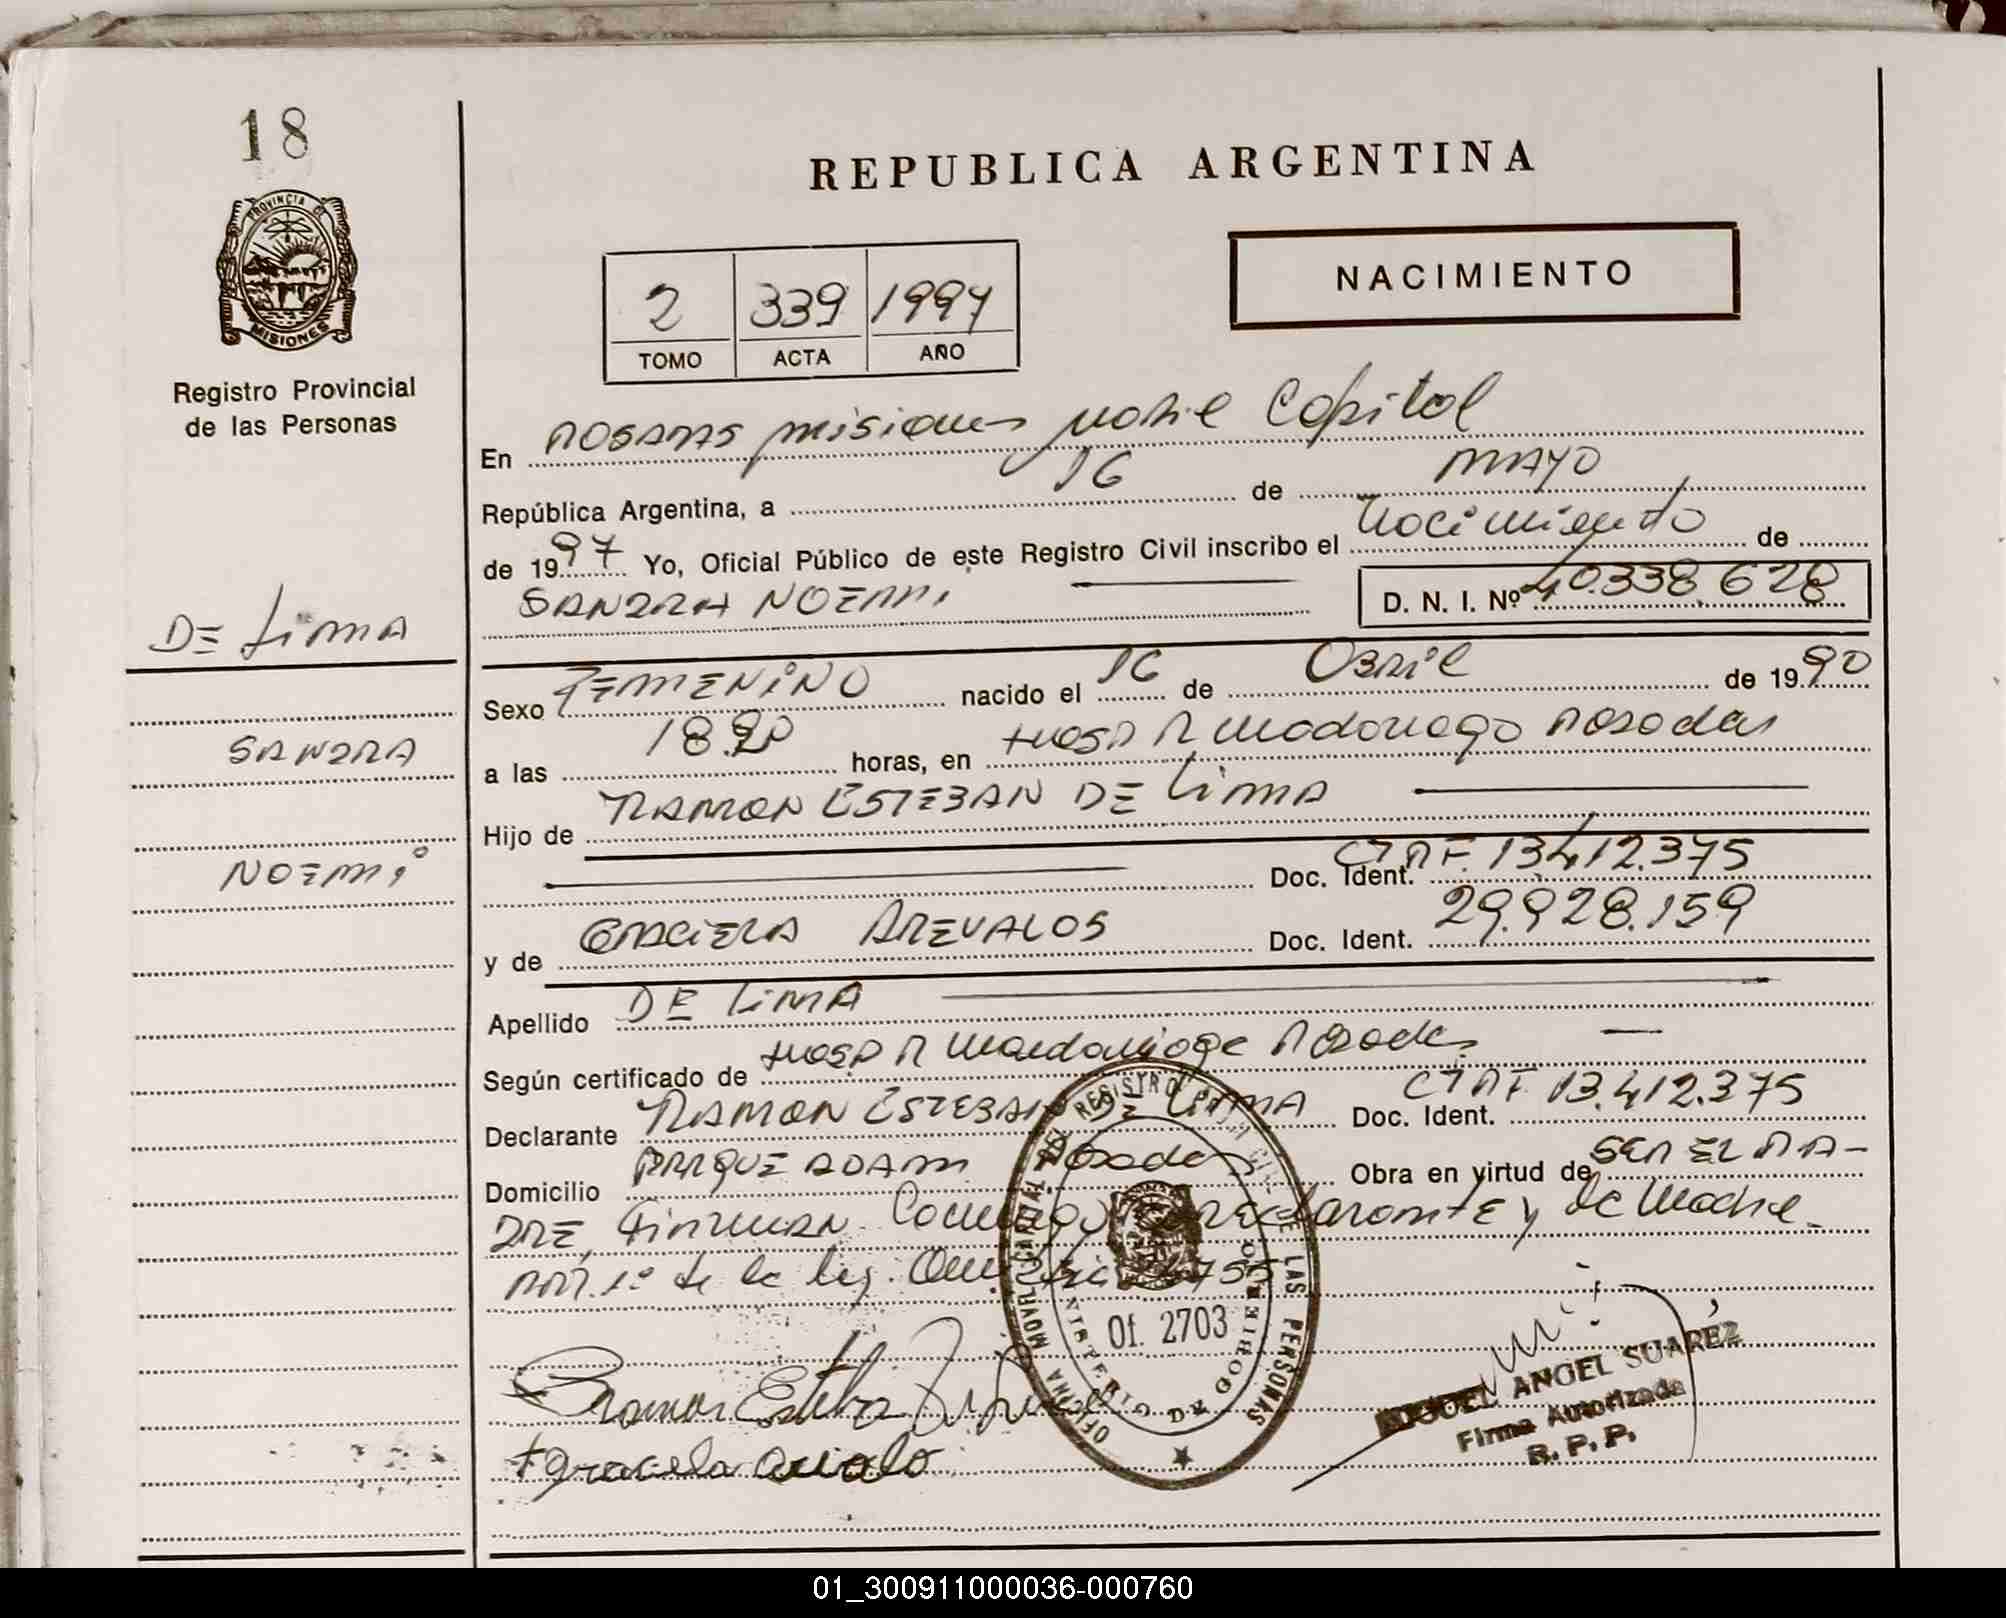 18
REPUBLICA ARGENTINA
PROVINCIA DE
MISIONES
Registro Provincial
de las Personas
2 339 1997
TOMO ACTA AÑO
NACIMIENTO
En POSADAS misiones Capital
República Argentina, a 16 de MAYO
de 1997 Yo, Oficial Público de este Registro Civil inscribo el nacimiento de
SANDRA NOEMI D. N. I. Nº 40.338.628
DE LIMA
Sexo FEMENINO nacido el 16 de Abril de 1990
SANDRA
a las 18.20 horas, en HOSP R Madariaga Posadas
Hijo de RAMON ESTEBAN DE LIMA
NOEMI
Doc. Ident. 13.412.375
y de GRACIELA AREVALOS Doc. Ident. 29.928.159
Apellido DE LIMA
Según certificado de HOSP R Madariaga Posadas
Declarante RAMON ESTEBAN DE LIMA Doc. Ident. 13.412.375
Domicilio PARQUE ADAM Posadas Obra en virtud de SER EL PA-
DRE, FIRMAN Conmigo DECLARANTE y la Madre.
ART. 1º de la ley
Ramon Esteban
graciela
OFICINA MOVIL CAPITAL DEL REGISTRO PROVINCIAL DE LAS PERSONAS
MINISTERIO DE GOBIERNO
Of. 2703
MIGUEL ANGEL SUAREZ
Firma Autorizada
R. P. P.
01_300911000036-000760